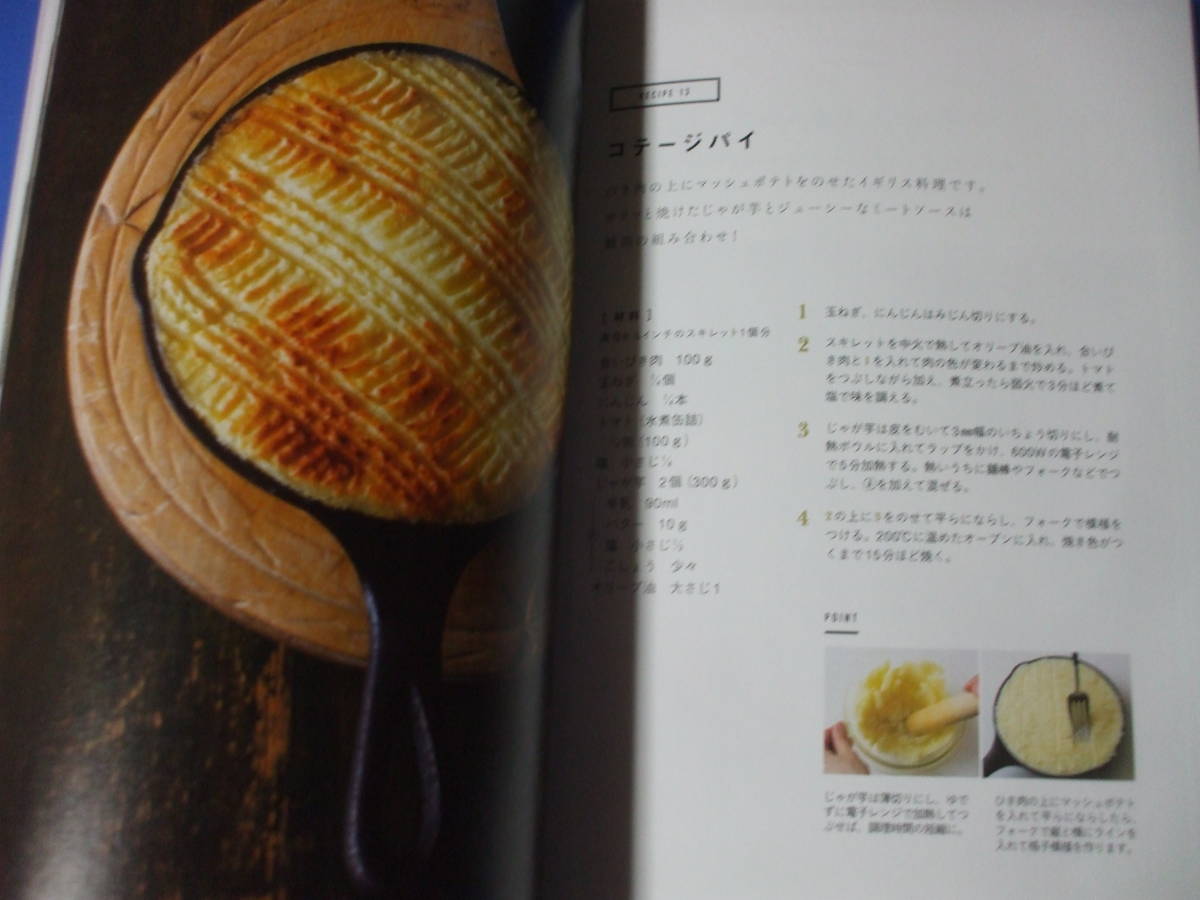 RECIPE 13
コテージパイ
ひき肉の上にマッシュポテトをのせたイギリス料理です。
と焼けたじゃが芋とジューシーなミートソースは
の組み合わせ!
[材料]
インチのスキレット1個分
合いびき肉 100g
玉ねぎ 個
にんじん 本
トマト(水煮缶詰)
(100g)
塩 小さじ
じゃが芋 2個(300g)
牛乳 90ml
バター 10g
塩 小さじ
こしょう 少々
オリーブ油 大さじ1
1 玉ねぎ、にんじんはみじん切りにする。
2 スキレットを中火で熱してオリーブ油を入れ、合いび
き肉と1を入れて肉の色が変わるまで炒める。トマト
をつぶしながら加え、煮立ったら弱火で3分ほど煮て
塩で味を調える。
3 じゃが芋は皮をむいて3mm幅のいちょう切りにし、耐
熱ボウルに入れてラップをかけ、600Wの電子レンジ
で5分加熱する。熱いうちに麺棒やフォークなどでつ
ぶし、Ⓐを加えて混ぜる。
4 2の上に3をのせて平らにならし、フォークで模様を
つける。200℃に温めたオーブンに入れ、焼き色がつ
くまで15分ほど焼く。
POINT
じゃが芋は薄切りにし、ゆで
ずに電子レンジで加熱してつ
ぶせば、調理時間の短縮に。
ひき肉の上にマッシュポテト
を入れて平らにならしたら、
フォークで縦と横にラインを
入れて格子模様を作ります。